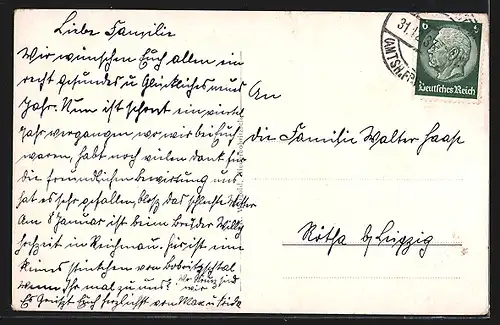 Liebe Familie
Wir wünschen Euch allen ein
recht gesundes u Glückliches neues
Jahr. Nun ist schon ein viertel
Jahr vergangen wo wir bei Euch
waren, habt noch vielen dank für
die freundlichen Bewirtung uns
hat es sehr gefallen, blos das schlechte Wetter
Am 8 Januar ist beim Bruder Willy
hochzeit in Reichenau. hir ist ein
stückchen von
wenn Ihr mal zu uns?
wir
Es Grüßt Euch herzlichst von Max u
An
die Familie Walter Haase
Rötha b/Leipzig
31.12.
Deutsches Reich
6
6